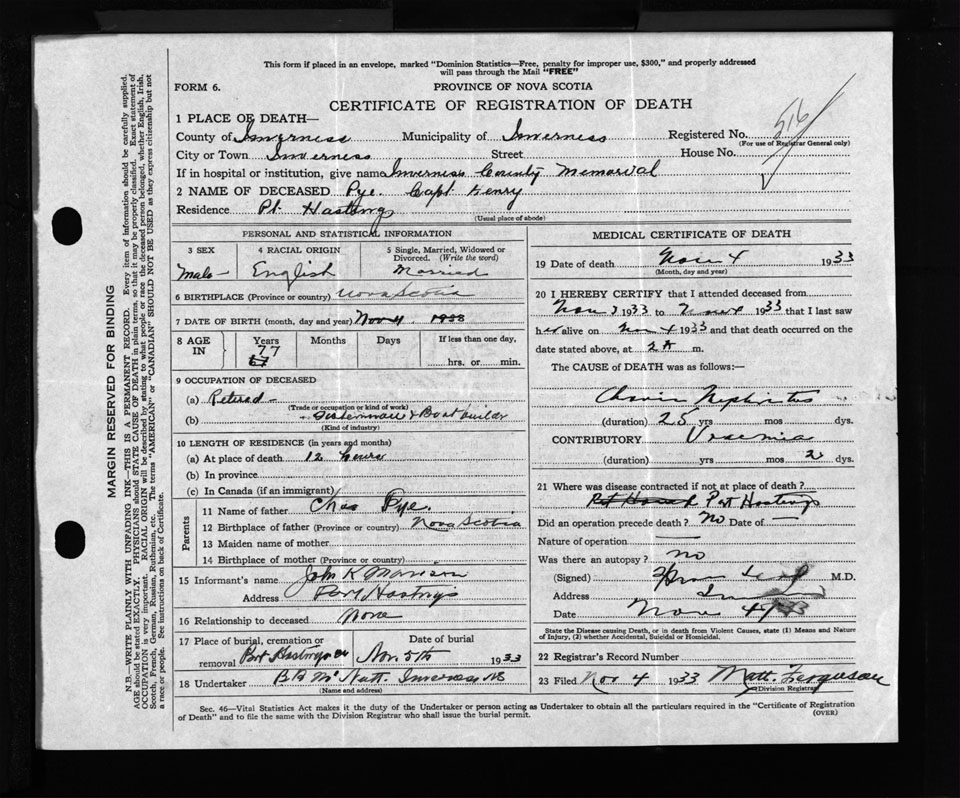 This form if placed in an envelope, marked "Dominion Statistics—Free, penalty for improper use, $300," and properly addressed
will pass through the Mail "FREE"
FORM 6. PROVINCE OF NOVA SCOTIA
CERTIFICATE OF REGISTRATION OF DEATH
1 PLACE OF DEATH—
County of Inverness Municipality of Inverness Registered No. 516
(For use of Registrar General only)
City or Town Inverness Street House No.
If in hospital or institution, give name Inverness County Memorial
2 NAME OF DECEASED Pye. Capt Henry
Residence Pt. Hastings
(Usual place of abode)
PERSONAL AND STATISTICAL INFORMATION
3 SEX 4 RACIAL ORIGIN 5 Single, Married, Widowed or Divorced. (Write the word)
Male— English Married
6 BIRTHPLACE (Province or country) Nova Scotia
7 DATE OF BIRTH (month, day and year) Nov 4
8 AGE IN Years Months Days If less than one day,
77
hrs. or min.
9 OCCUPATION OF DECEASED
(a) Retired—
(Trade or occupation or kind of work)
(b) + Fisherman & Boat builder
(Kind of industry)
10 LENGTH OF RESIDENCE (in years and months)
(a) At place of death 12 hours
(b) In province
(c) In Canada (if an immigrant)
Parents
11 Name of father Chas Pye.
12 Birthplace of father (Province or country) Nova Scotia
13 Maiden name of mother
14 Birthplace of mother (Province or country)
15 Informant's name John K Morrison
Address Port Hastings
16 Relationship to deceased None
17 Place of burial, cremation or removal Port Hastings Date of burial Nov. 5th 1933
18 Undertaker Inverness NS
(Name and address)
MEDICAL CERTIFICATE OF DEATH
19 Date of death Nov 4 1933
(Month, day and year)
20 I HEREBY CERTIFY that I attended deceased from
Nov 3 1933 to Nov 4 1933 that I last saw
h alive on Nov 4 1933 and that death occurred on the
date stated above, at 2 A m.
The CAUSE of DEATH was as follows:—
Chronic Nephritis
(duration) 25 yrs mos dys.
CONTRIBUTORY Uremia
(duration) yrs mos 2 dys.
21 Where was disease contracted if not at place of death?
Pt Hastings
Did an operation precede death? No Date of —
Nature of operation —
Was there an autopsy? No
(Signed) M.D.
Address
Date Nov 4/33
State the Disease causing Death, or in death from Violent Causes, state (1) Means and Nature
of Injury, (2) whether Accidental, Suicidal or Homicidal.
22 Registrar's Record Number
23 Filed Nov 4 1933 Matt. Ferguson
Division Registrar
Sec. 46—Vital Statistics Act makes it the duty of the Undertaker or person acting as Undertaker to obtain all the particulars required in the "Certificate of Registration
of Death" and to file the same with the Division Registrar who shall issue the burial permit. (OVER)
MARGIN RESERVED FOR BINDING
N.B.—WRITE PLAINLY WITH UNFADING INK—THIS IS A PERMANENT RECORD. Every item of information should be carefully supplied.
AGE should be stated EXACTLY. PHYSICIANS should STATE CAUSE OF DEATH in plain terms, so that it may be properly classified. Exact statement of
OCCUPATION is very important. RACIAL ORIGIN will be described by stating to what people or race the deceased person belonged, whether English, Irish,
Scotch, French, German, Russian, Ruthenian, etc. The terms "AMERICAN" or "CANADIAN" SHOULD NOT BE USED as they express citizenship but not
a race or people. See instructions on back of Certificate.